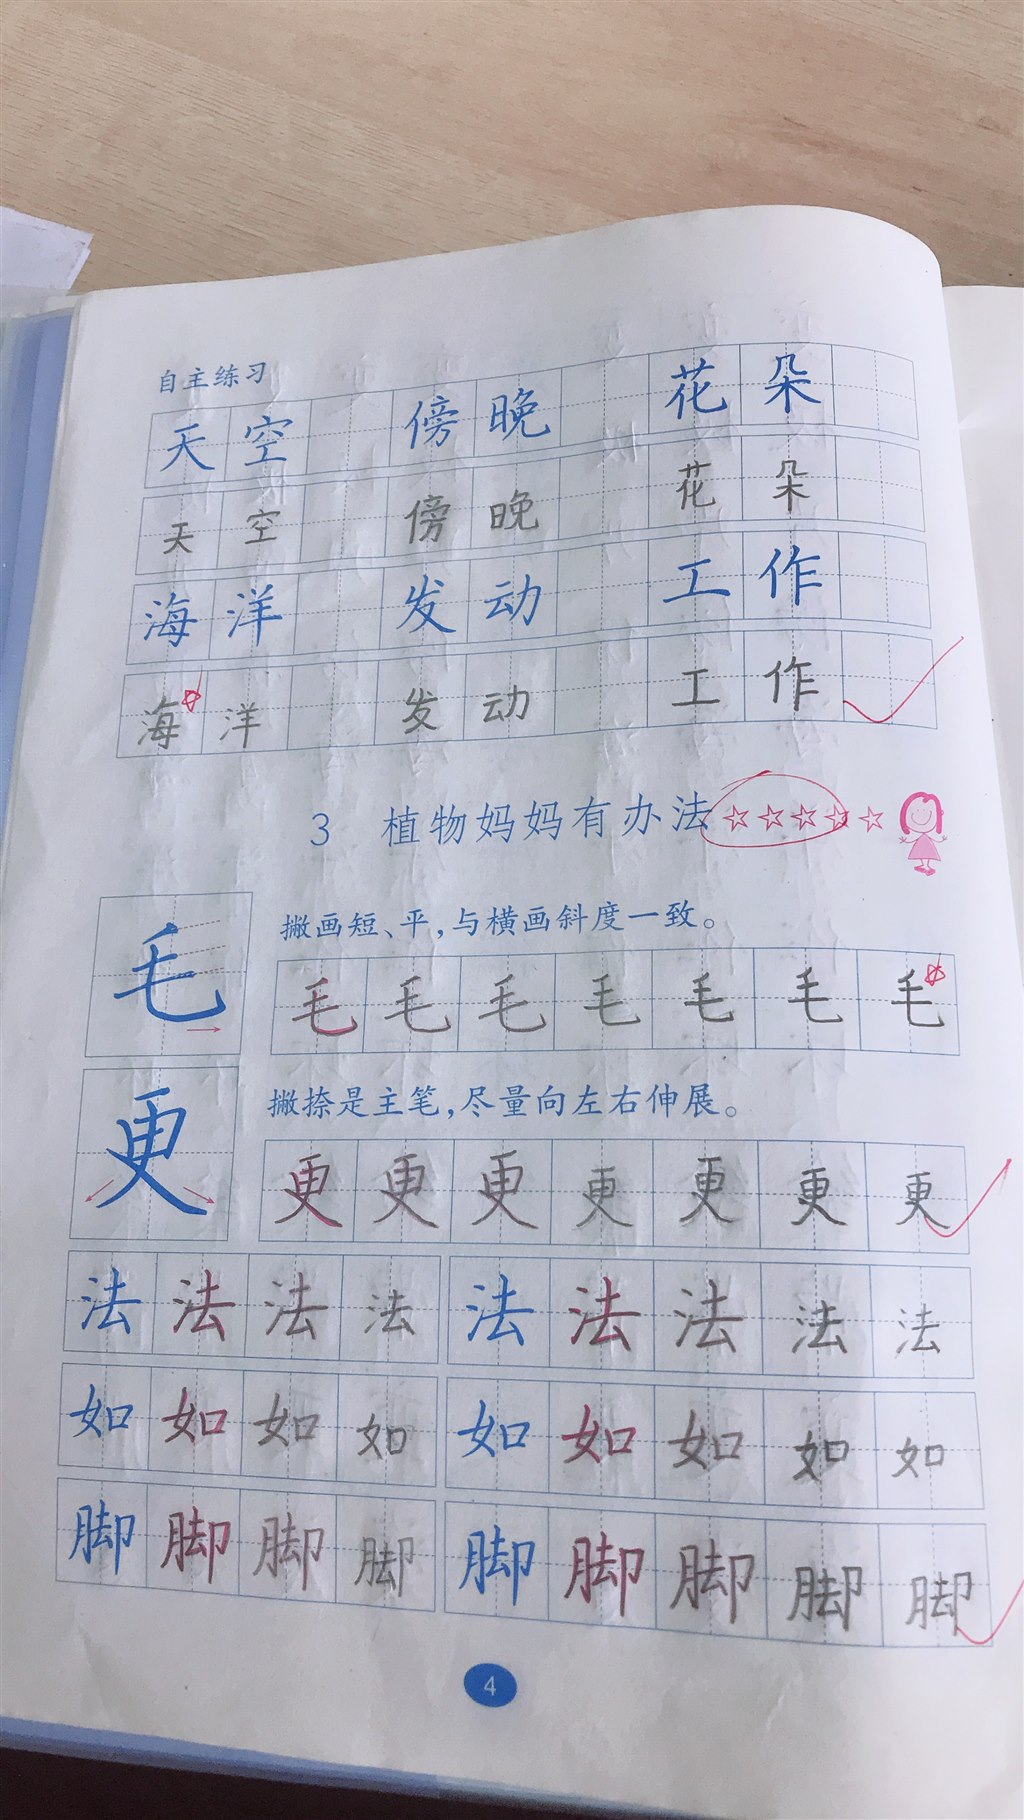 自主练习
天空 傍晚 花朵
天空 傍晚 花朵
海洋 发动 工作
海洋 发动 工作
3 植物妈妈有办法 ☆☆☆☆☆
毛 撇画短、平,与横画斜度一致。
毛毛毛毛毛毛毛
更 撇捺是主笔,尽量向左右伸展。
更更更更更更更
法法法法 法法法法法
如如如如 如如如如如
脚脚脚脚 脚脚脚脚脚
4